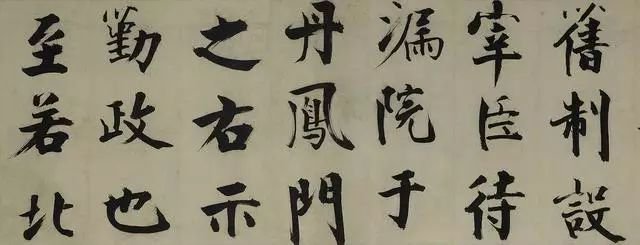 舊制設
宰臣待
漏院于
丹鳳門
之右示
勤政也
至若北